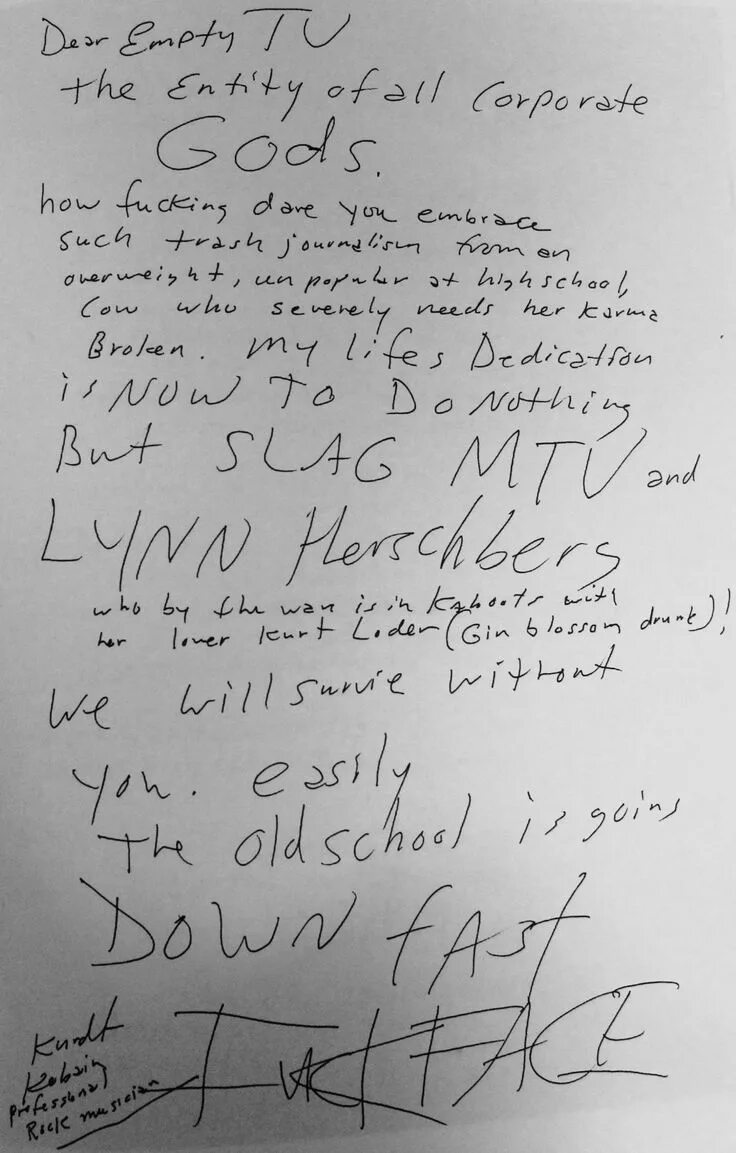 Dear Empty TV
the Entity of all Corporate
Gods.
how fucking dare you embrace
such trash journalism from an
overweight, un popular at highschool,
Cow who severely needs her karma
Broken. My lifes Dedication
is NOW TO DO Nothing
But SLAG MTV and
LYNN Herschberg
who by the way is in Kahoots with
her lover Kurt Loder (Gin blossom drunk)!
We will survie without
you. easily
The oldschool is going
DOWN fAST
FUCK FACE
Kurdt
Kobain
professional
Rock musician